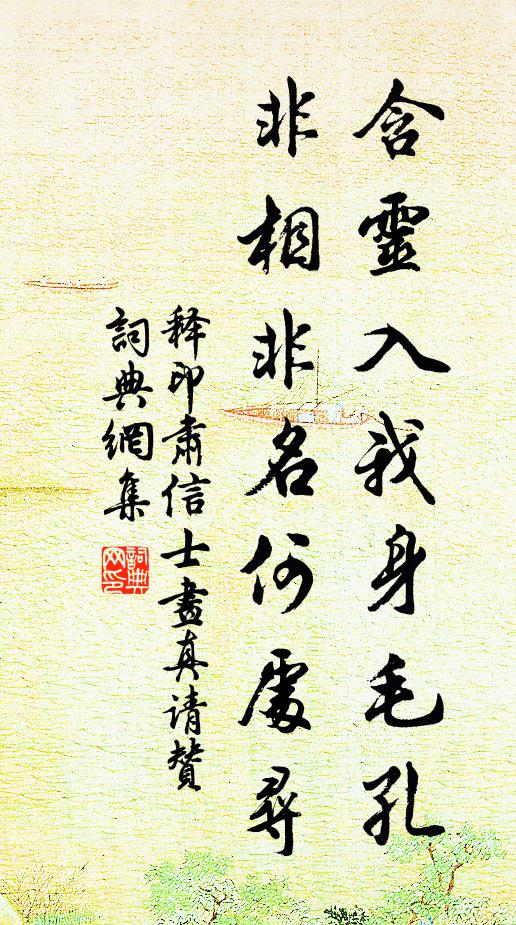 含靈入我身毛孔
非相非名何處尋
释印肃信士畫真请贊
詞典網集
詞典
网印